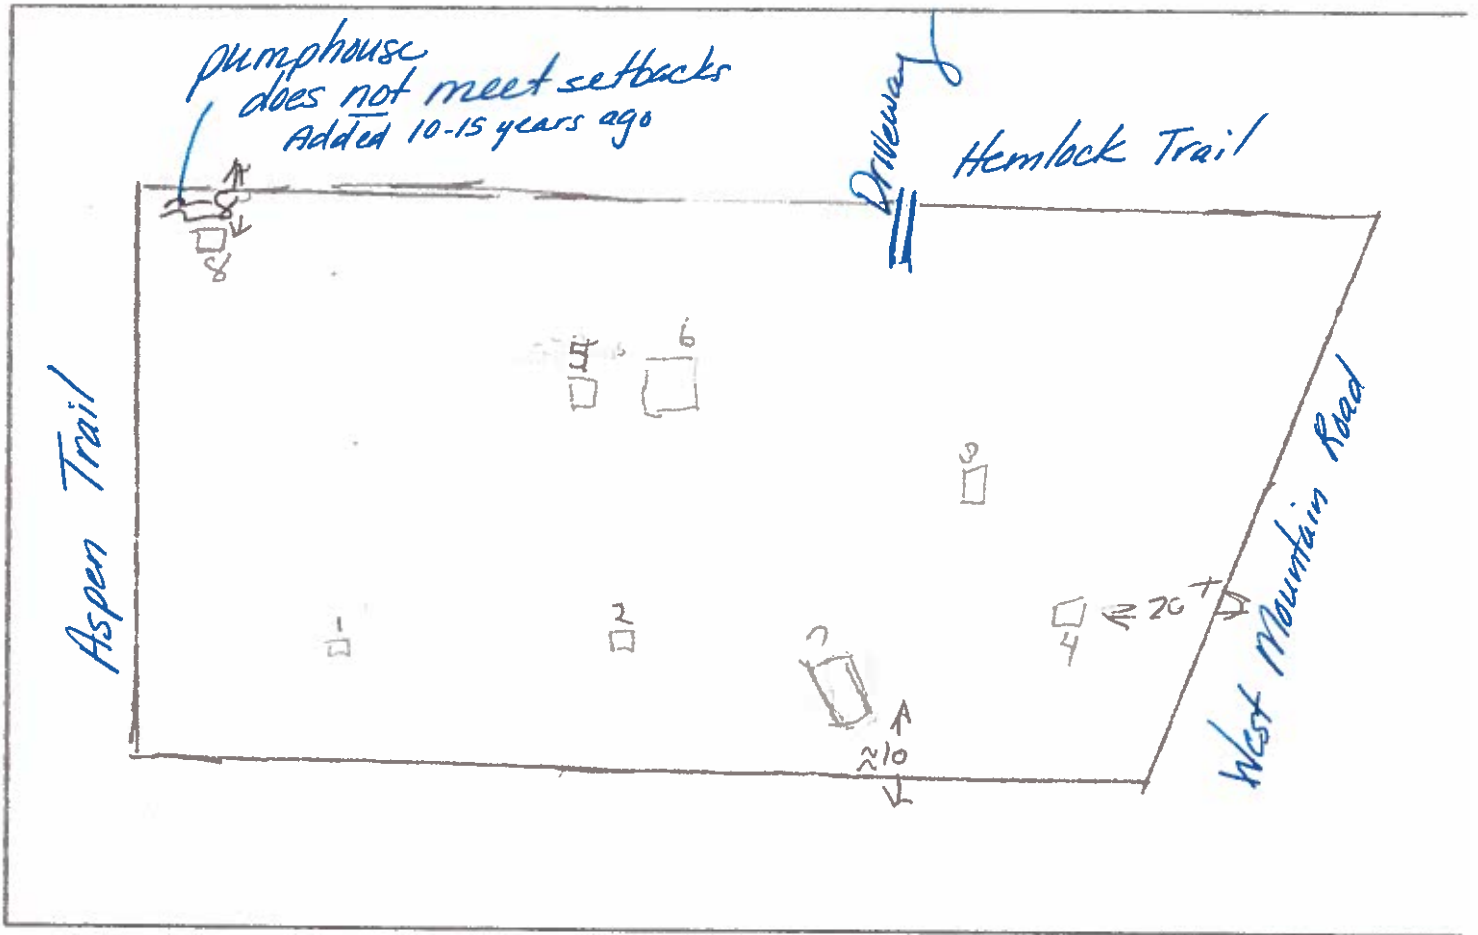 pumphouse
does not meet setbacks
Added 10-15 years ago
Driveway
Hemlock Trail
8
8
6
Aspen Trail
West Mountain Road
3
1
2
7
4
20
≈10